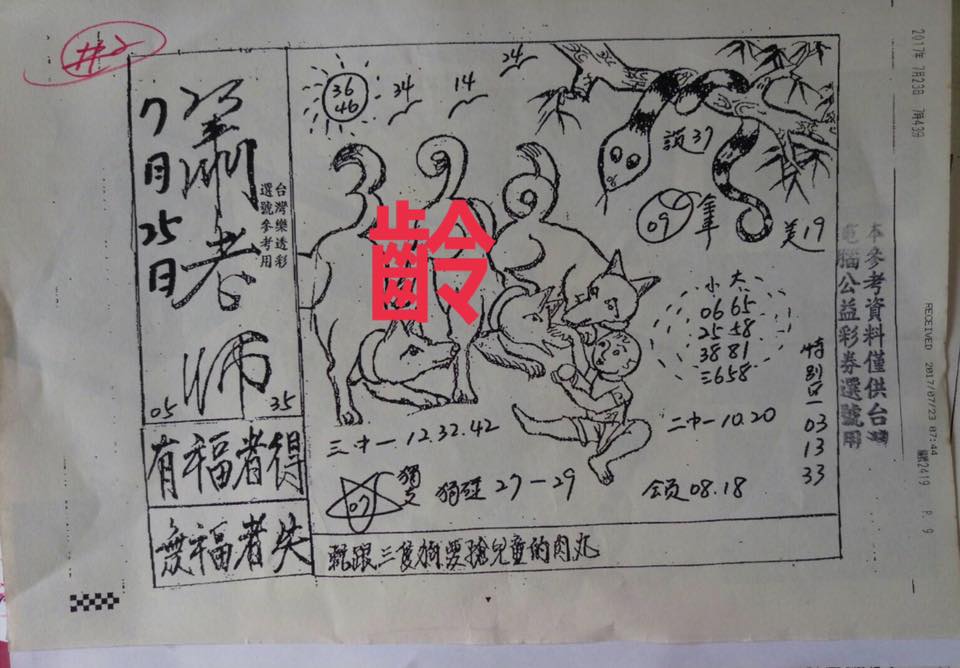 #2
7月25日
老師
05
35
台灣樂透彩
選號參考用
有福者得
無福者失
36
46
34
14
24
齡
說37
09
羊
美19
小大
0665
2558
3881
三658
特別号
03
13
33
三中一12.32.42
二中一10.20
07
獨支
獨碰27—29
領08.18
三隻狗要搶兒童的肉丸
2017年 7月23日 7時43分
本參考資料僅供台灣
電腦公益彩券選號用
RECEIVED 2017/07/23 07:44
編號2419 P. 9